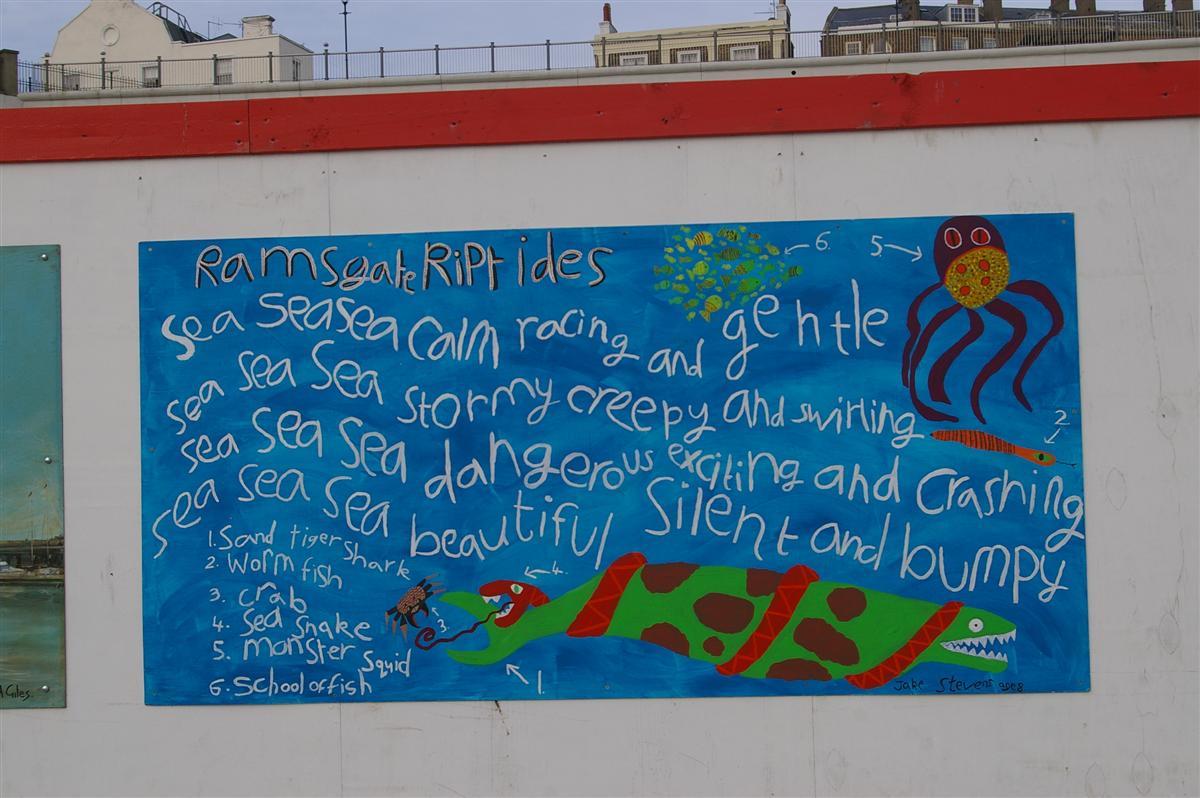 Ramsgate RiPtides
Sea SeaSea Calm racing and gentle
sea Sea Sea stormy creepy and swirling
sea Sea Sea dangerous exciting and Crashing
sea Sea Sea beautiful Silent and bumpy
1. Sand tiger shark
2. Worm fish
3. crab
4. Sea snake
5. monster squid
6. School of fish
6.
5.
2
4.
3.
1.
Jake Stevens 2008
A Giles.